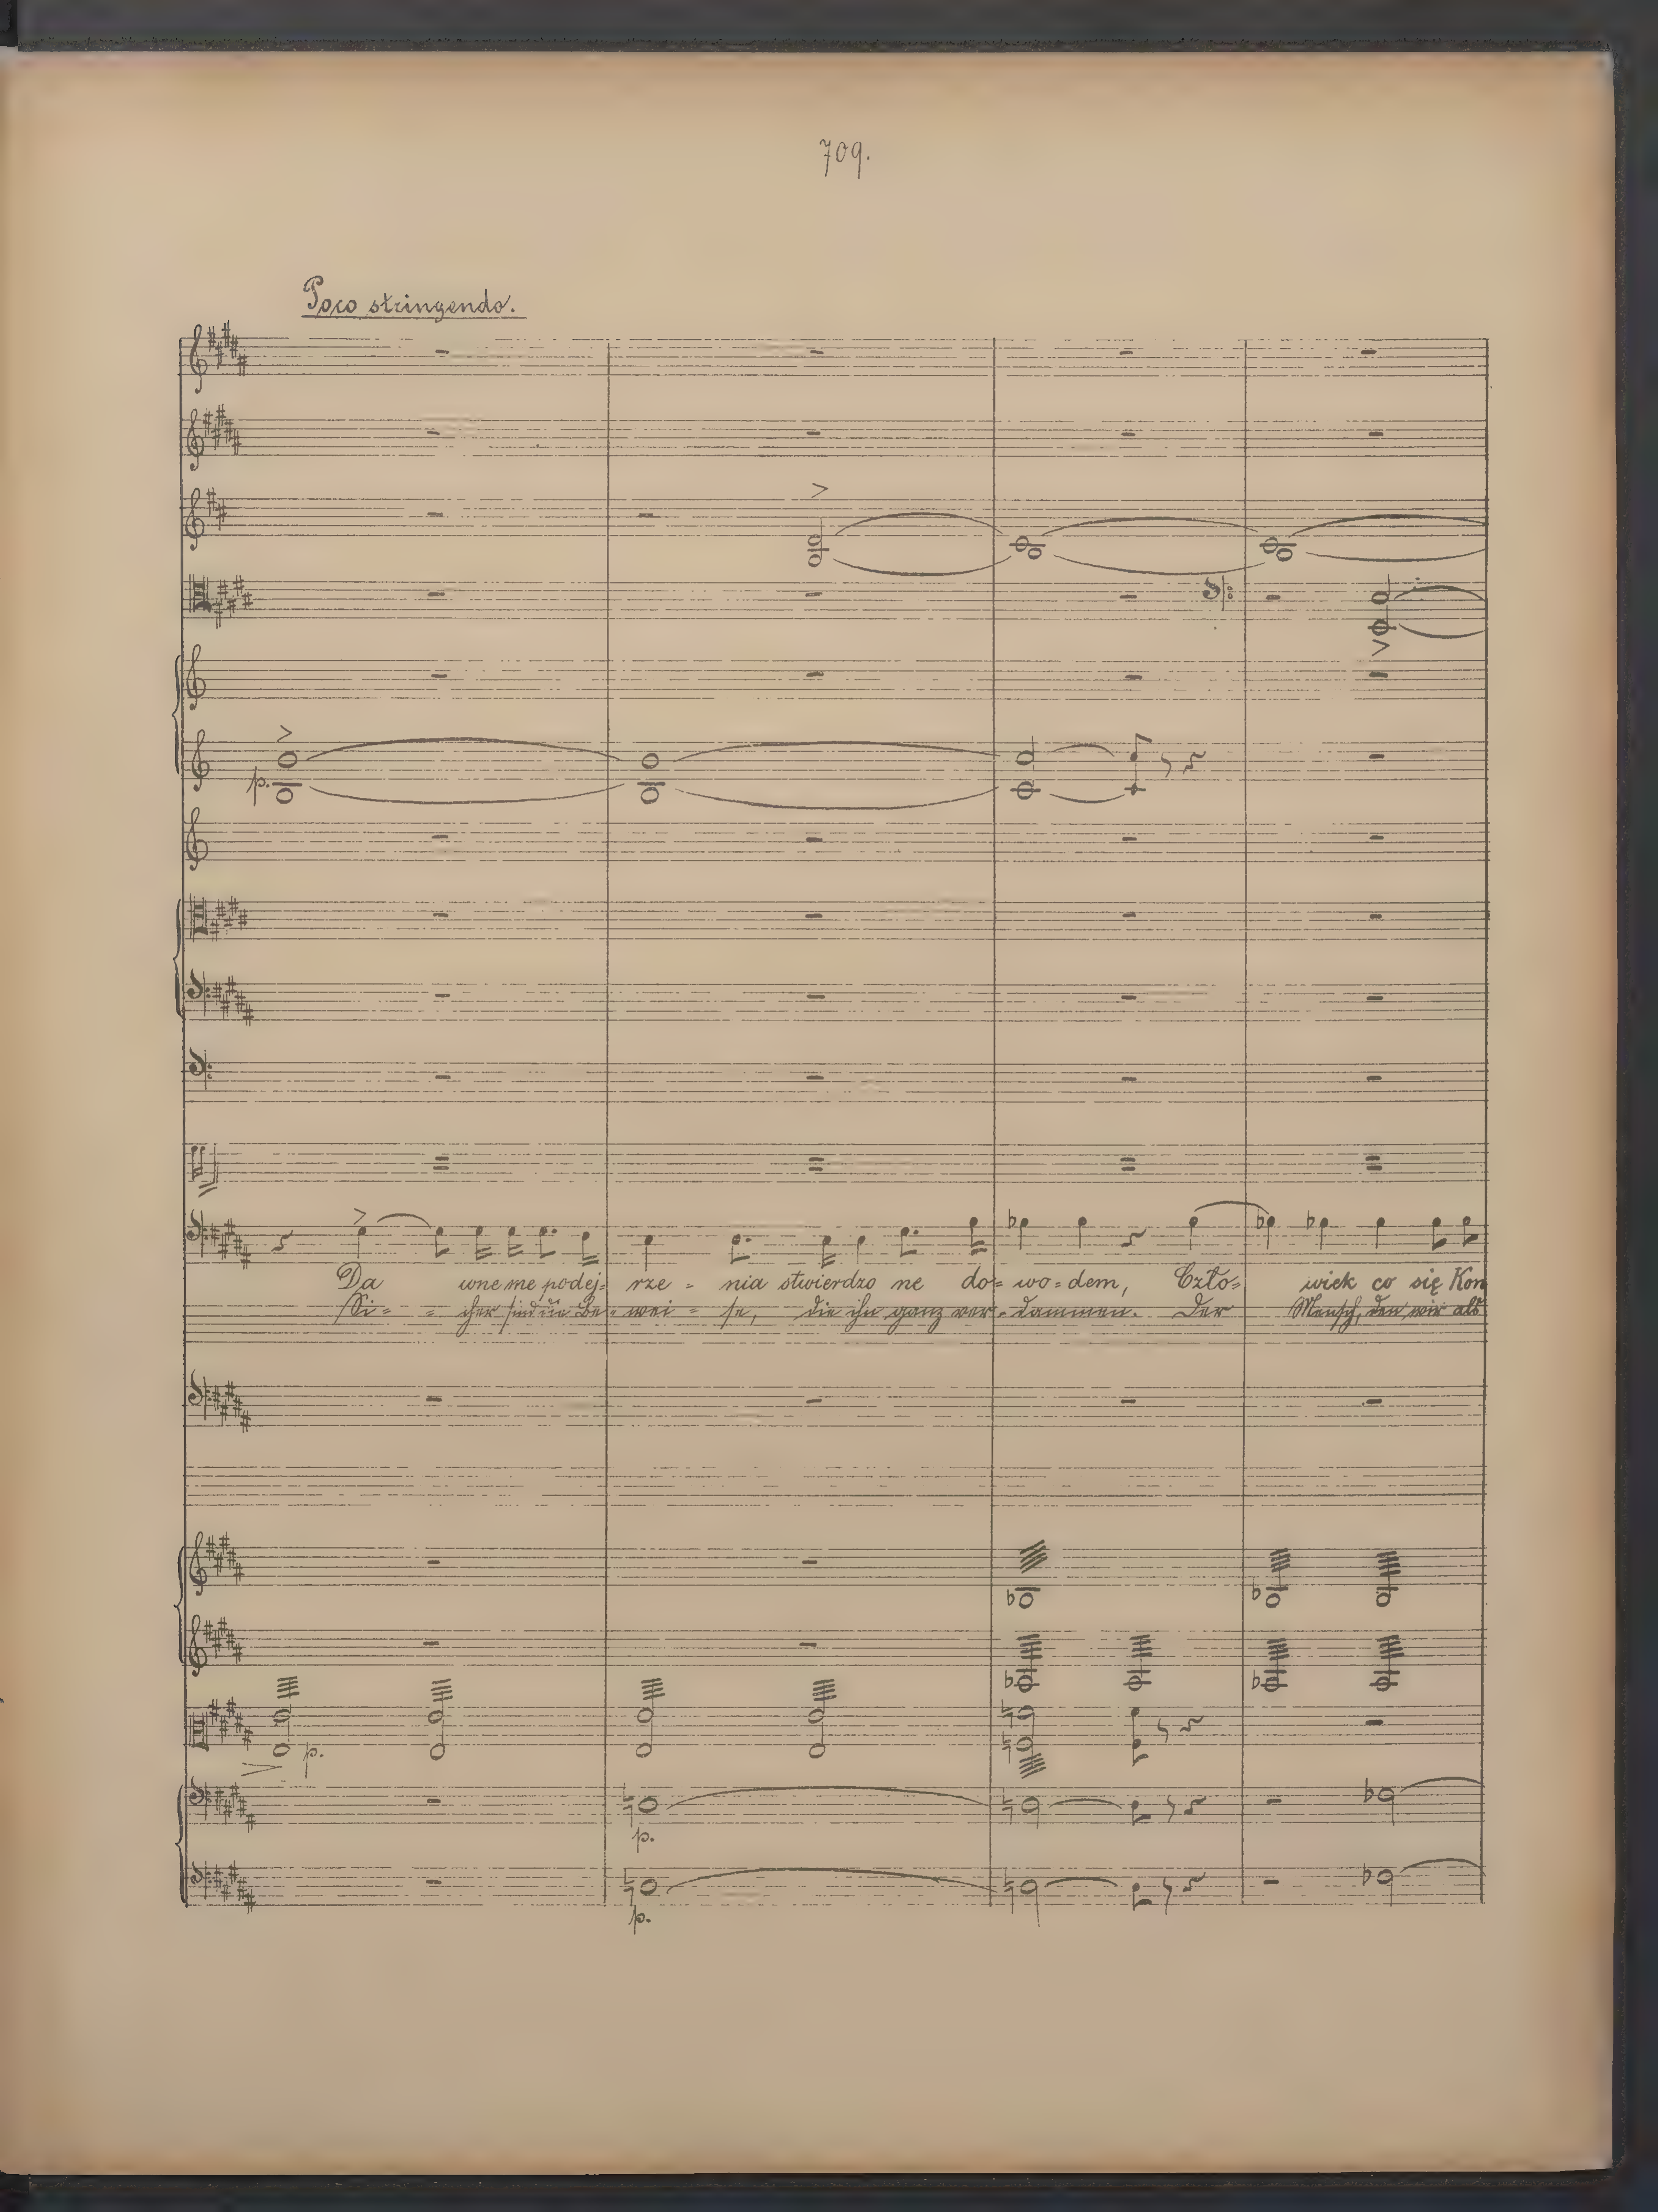 709.
Poco stringendo.
p.
Da wne me podej= rze = nia stwierdzo ne do= wo=dem, Czło= wiek co się Kon
Si= = cher sind die Be= wei = se, die ihn ganz ver= dammen. Der Mensch, den wir als
p.
p.
p.